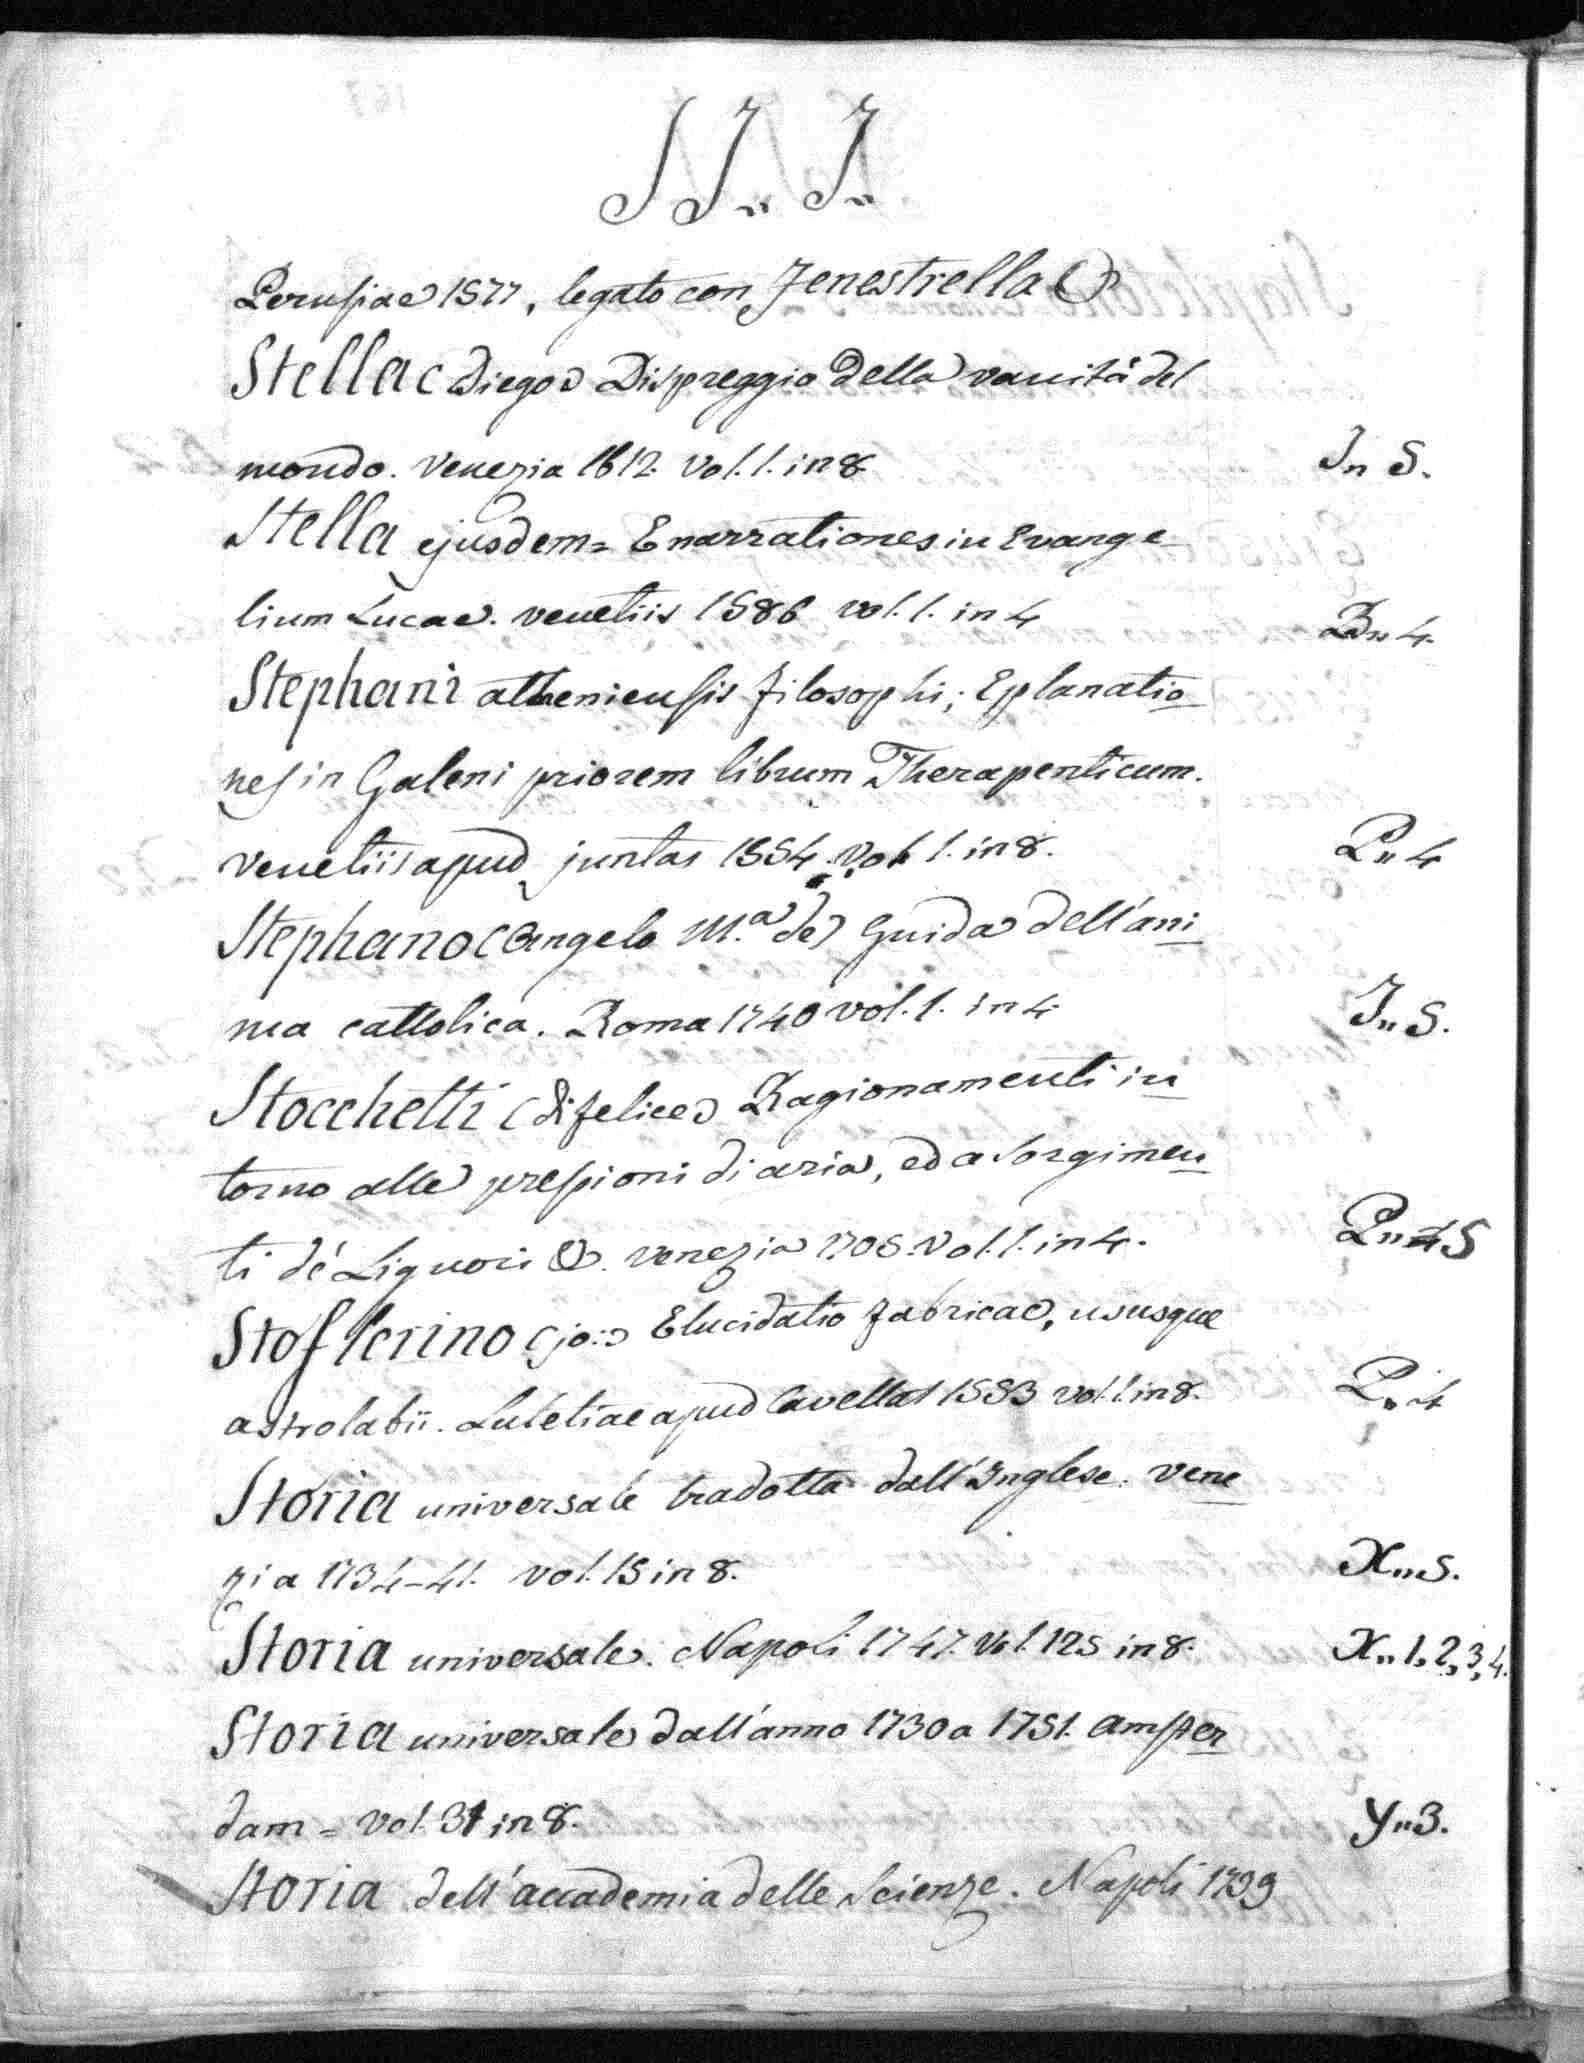 S T„ T„
Perusiae 1577, legato con Fenestrella &
Stella (Diego) Dispreggio della vanità del
mondo. Venezia 1612. Vol. 1. in 8. I„ 5.
Stella ejusdem = Enarrationes in Evange
lium Lucae. venetiis 1586 vol. 1. in 4 B„ 4.
Stephani atheniensis filosophi; Eplanatio
nes in Galeni priorem librum Therapenticum.
Venetiis apud juntas 1554. Vol. 1. in 8. P„ 4
Stephano (Angelo M.a de) Guida dell'ani
ma cattolica. Roma 1740 vol. 1. in 4 I„ 5.
Stocchetti (di felice) Ragionamenti in
torno alle pressioni di aria, ed a sorgimen
ti dé Liquori &. venezia 1705. Vol. 1. in 4. P„ 5
Stoflerino (jo:) Elucidatio fabricae, ususque
astrolabii. Lutetiae apud Cavellat 1553 vol. 1. in 8. P„ 4
Storia universale tradotta dall'Inglese. vene
zia 1734-41. vol. 15 in 8. X„ 5.
Storia universale. Napoli 1747. Vol. 125 in 8. X„ 1, 2, 3, 4.
Storia universale dall'anno 1730 a 1751. Amster
dam = Vol. 31 in 8. Y„ 3.
Storia dell'accademia delle Scienze. Napoli 1739